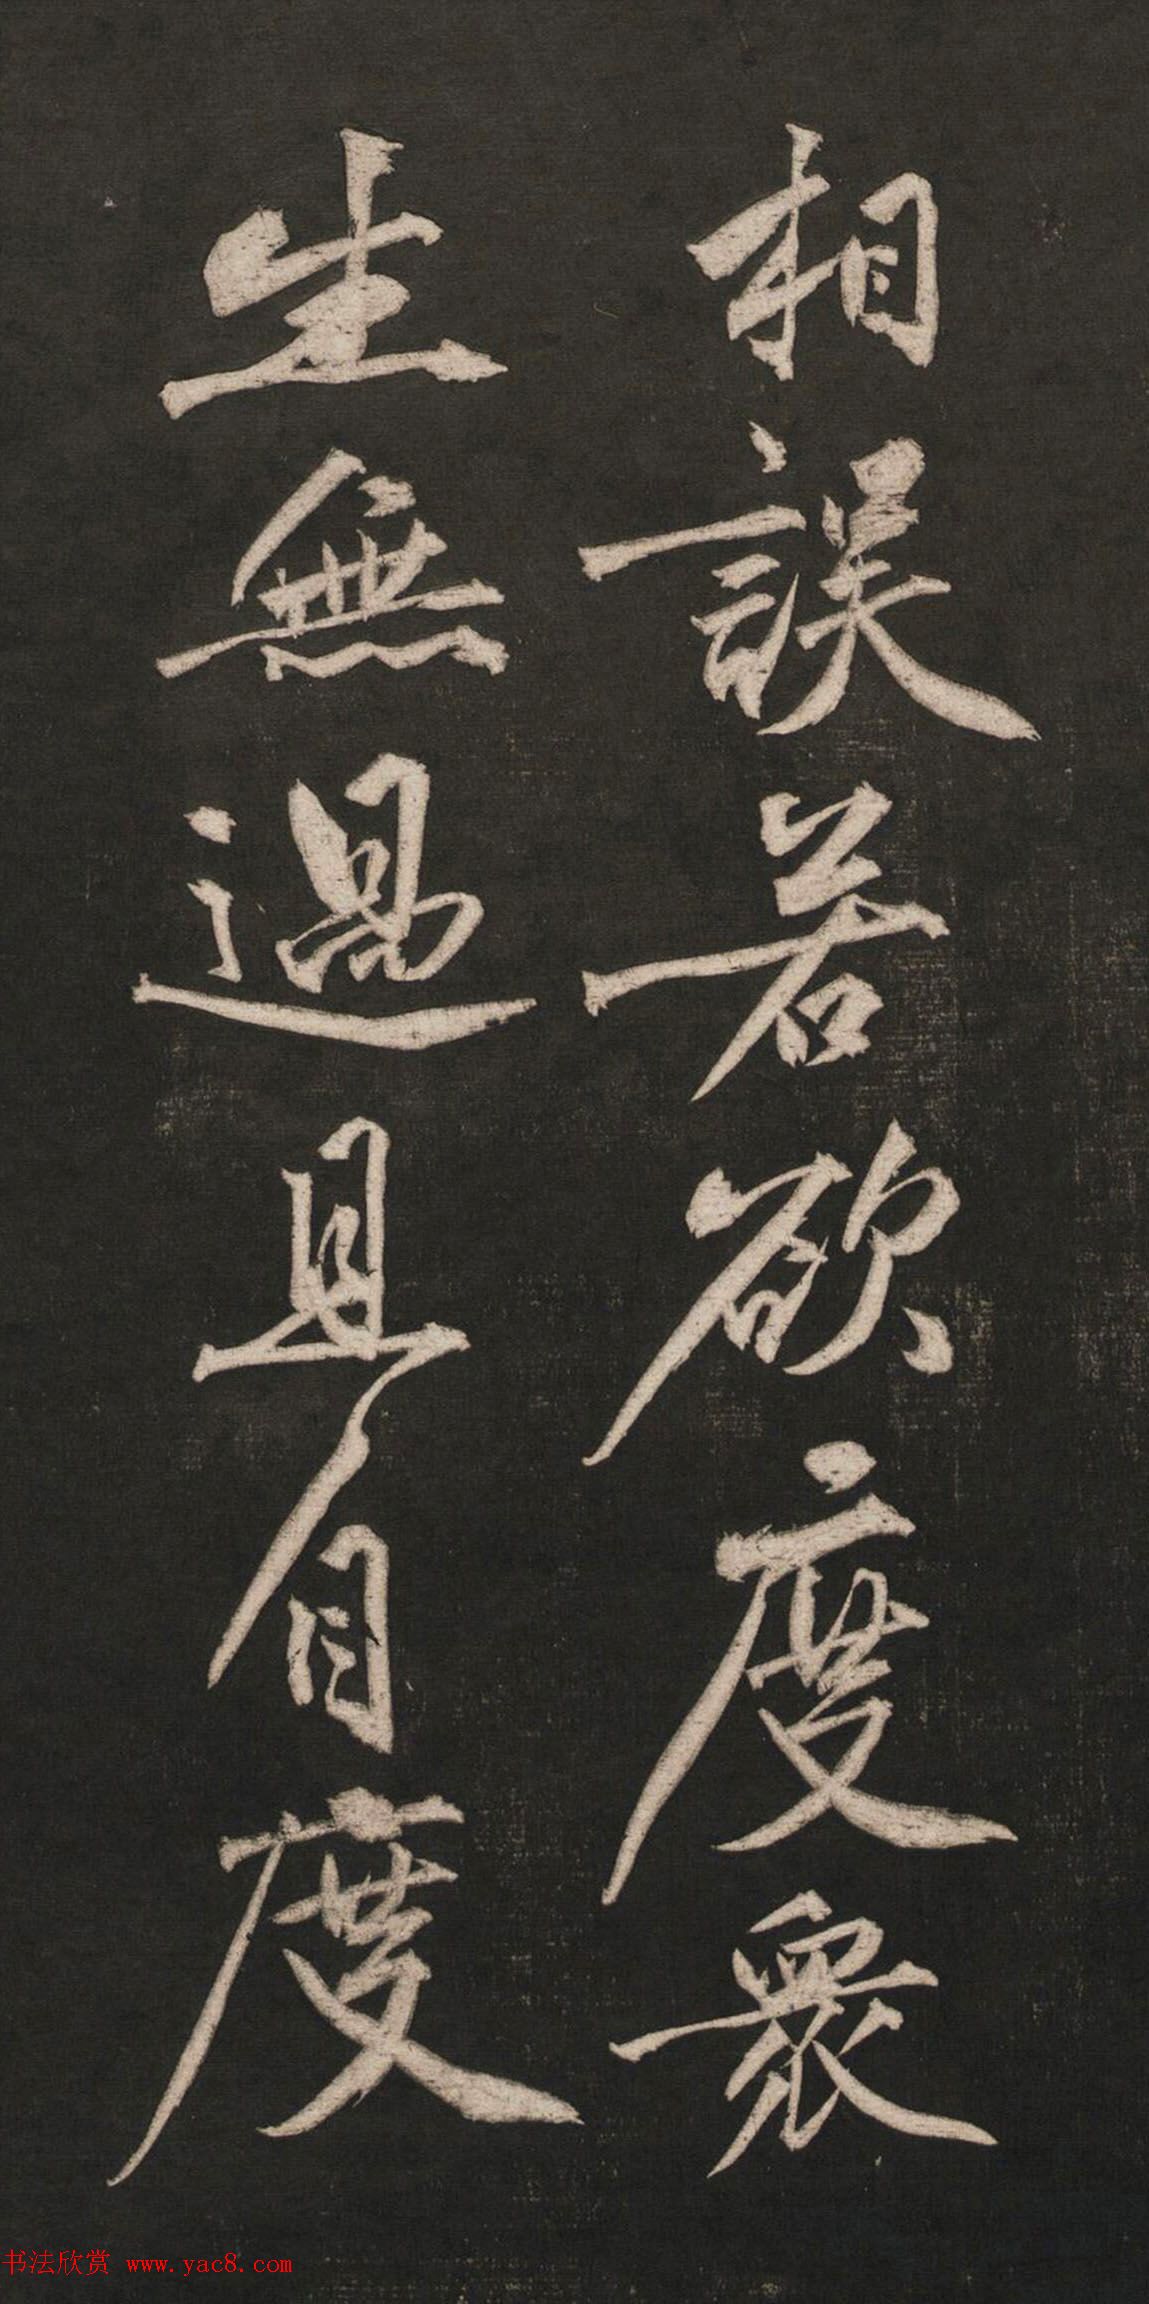 相誤若欲度衆
生無過且自度
书法欣赏 www.yac8.com